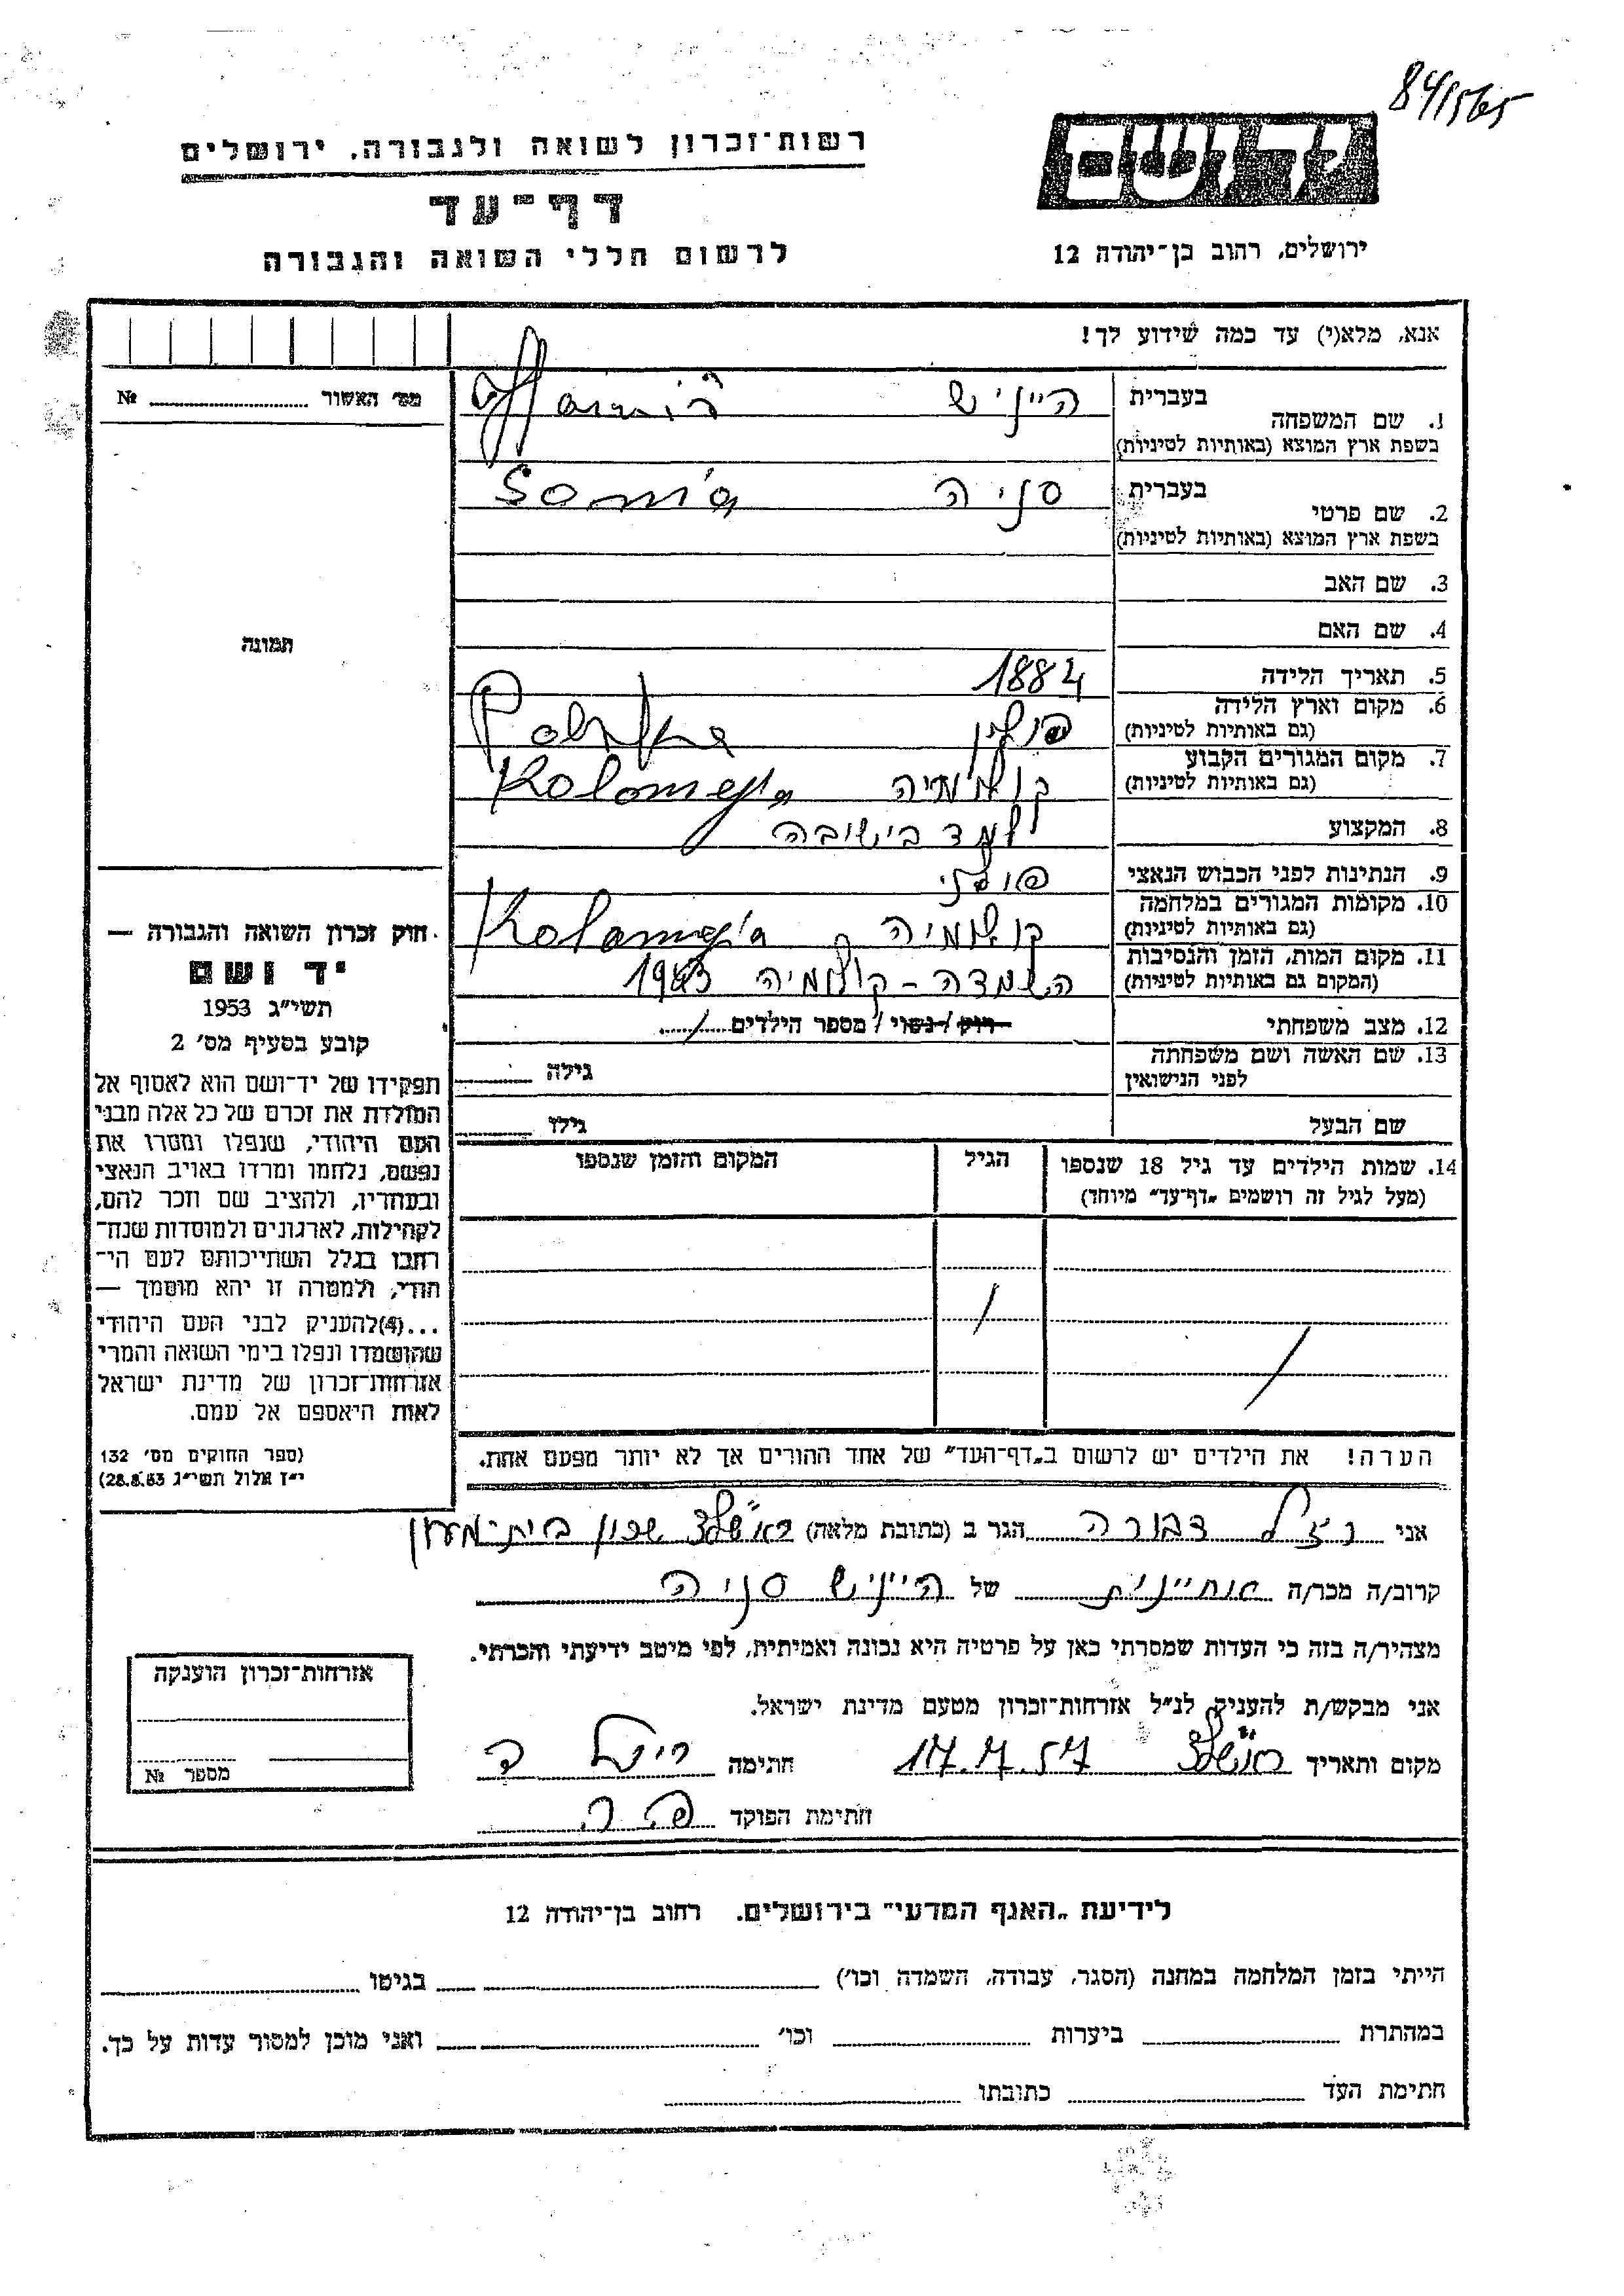 84/1565
רשות־זכרון לשואה ולגבורה, ירושלים
יד ושם
דף־עד
לרשום חללי השואה והגבורה
ירושלים, רחוב בן־יהודה 12
אנא, מלא(י) עד כמה שידוע לך!
מס׳ האשור № ........
1. שם המשפחה בעברית הייניש
בשפת ארץ המוצא (באותיות לטיניות)
2. שם פרטי בעברית סניה Sonia
בשפת ארץ המוצא (באותיות לטיניות)
3. שם האב
4. שם האם
תמונה
5. תאריך הלידה 1884
6. מקום וארץ הלידה פולין Polska
(גם באותיות לטיניות)
7. מקום המגורים הקבוע קולומיה Kolomeja
(גם באותיות לטיניות)
8. המקצוע למד בישיבה
9. הנתינות לפני הכבוש הנאצי פולני
10. מקומות המגורים במלחמה קולומיה Kolomeja
(גם באותיות לטיניות)
11. מקום המות, הזמן והנסיבות השמדה - קולומיה 1943
(המקום גם באותיות לטיניות)
12. מצב משפחתי רווק / נשוי / מספר הילדים ..../....
13. שם האשה ושם משפחתה גילה
לפני הנישואין
שם הבעל גילו
14. שמות הילדים עד גיל 18 שנספו הגיל המקום והזמן שנספו
(מעל לגיל זה רושמים „דף־עד״ מיוחד)
חוק זכרון השואה והגבורה —
יד ושם
תשי״ג 1953
קובע בסעיף מס׳ 2
תפקידו של יד־ושם הוא לאסוף אל
המולדת את זכרם של כל אלה מבני
העם היהודי, שנפלו ומסרו את
נפשם, נלחמו ומרדו באויב הנאצי
ובעוזריו, ולהציב שם וזכר להם,
לקהילות, לארגונים ולמוסדות שנח־
רבו בגלל השתייכותם לעם הי־
הודי, ולמטרה זו יהא מוסמך —
...(4)להעניק לבני העם היהודי
שהושמדו ונפלו בימי השואה והמרי
אזרחות־זכרון של מדינת ישראל
לאות היאספם אל עמם.
(ספר החוקים מס׳ 132
י״ז אלול תשי״ג 28.8.53)
הערה! את הילדים יש לרשום ב„דף־העד״ של אחד ההורים אך לא יותר מפעם אחת.
אני דבורה הגר ב (כתובת מלאה) ראשל״צ שכון
קרוב/ה מכר/ה אחיינית של הייניש סניה
מצהיר/ה בזה כי העדות שמסרתי כאן על פרטיה היא נכונה ואמיתית, לפי מיטב ידיעתי והכרתי.
אני מבקש/ת להעניק לנ״ל אזרחות־זכרון מטעם מדינת ישראל.
מקום ותאריך ראשל״צ 17.7.57 חתימה
חתימת הפוקד
אזרחות־זכרון הוענקה
מספר №
לידיעת „האגף המדעי״ בירושלים, רחוב בן־יהודה 12
הייתי בזמן המלחמה במחנה (הסגר, עבודה, השמדה וכו׳) בגיטו
במחתרת ביערות וכו׳ ואני מוכן למסור עדות על כך.
חתימת העד כתובתו